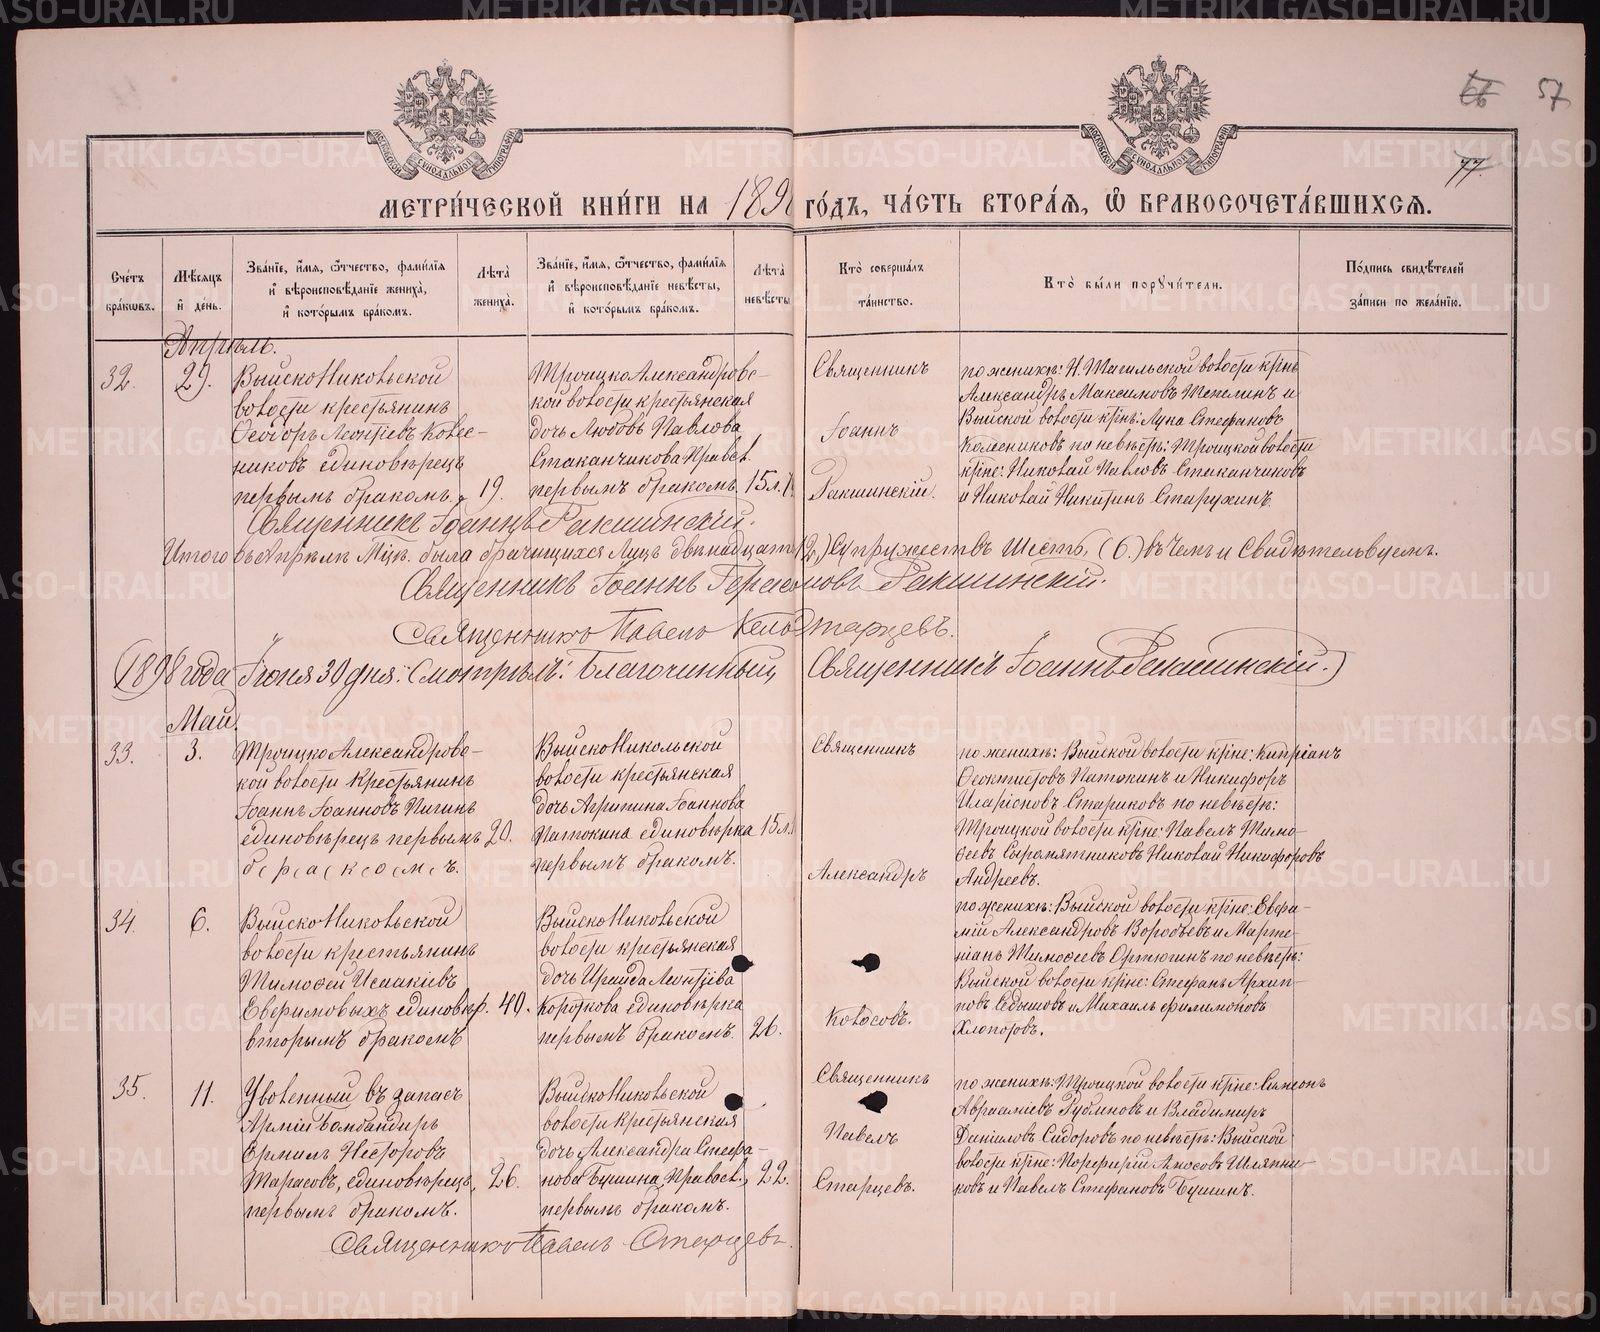 57
77
МЕТРИ́ЧЕСКОЙ КНИ́ГИ НА 1898 ГО́ДЪ, ЧА́СТЬ ВТОРА́Я, Ѡ БРАКОСОЧЕТА́ВШИХСЯ.
Сче́тъ бра́кωвъ.
Мѣ́сяцъ и҆ де́нь.
Зва́нїе, и҆́мя, ѻ҆́тчество, фами́лїя и҆ вѣроисповѣ́данїе жениха̀, и҆ кото́рымъ бра́комъ.
Лѣ́та жениха̀.
Зва́нїе, и҆́мя, ѻ҆́тчество, фами́лїя и҆ вѣроисповѣ́данїе невѣ́сты, и҆ кото́рымъ бра́комъ.
Лѣ́та невѣ́сты
Кто̀ соверша́лъ та́инство.
Кто̀ бы́ли порꙋчи́тели.
По́дпись свидѣ́телей за́писи по жела́нїю.
Апрѣль.
32.
29.
ВыйскоНикольской
волости крестьянинъ
Ѳеодоръ Леонтіевъ Колес-
никовъ единовѣрецъ
первымъ бракомъ.
19.
ТроицкоАлександровс-
кой волости крестьянская
дочь Любовь Павлова
Стаканчикова Правсл.
первымъ бракомъ.
15 л.
Священникъ
Іоаннъ
Ракшинскій.
по женихѣ: Н. Тагильской волости кр҃нъ
Александръ Максимовъ Шепелинъ и
Выйской волости кр҃нъ: Лука Стефановъ
по невѣстѣ: Троицкой волости
кр҃не: Николай Павловъ Стаканчиковъ
и Николай Никитинъ Старухинъ.
Священникъ Іоаннъ Ракшинскій.
Итого въ Апрѣлѣ М҃цѣ была брачущихся Лицъ двѣнадцать (12,) Супружествъ Шесть, (6.) въ чемъ и Свидѣтельвуемъ.
Священникъ Іоаннъ Герасимовъ Ракшинскій.
Священникъ Павелъ Старцевъ.
(1898 года Іюня 30 дня: Смотрѣлъ: Благочинный, Священникъ Іоаннъ Ракшинскій.)
Май.
33.
3.
ТроицкоАлександровс-
кой волости Крестьянинъ
Іоаннъ Іоанновъ Пигинъ
единовѣрецъ первымъ
бракомъ.
20.
ВыйскоНикольской
волости крестьянская
дочь Агрипина Іоаннова
Патокина единовѣрка
первымъ бракомъ.
15 л.
Священникъ
Александръ
по женихѣ: Выйской волости кр҃не: Кипріанъ
Ѳеоктистовъ Патокинъ и Никифоръ
Иларіоновъ Стариковъ по невѣстѣ:
Троицкой волости кр҃не: Павелъ Тимо-
ѳеевъ Сыромятниковъ Николай Никифоровъ
Андреевъ.
34.
6.
ВыйскоНикольской
волости крестьянинъ
Тимоѳей Исаакіевъ
Евфимовыхъ единовѣр.
вторымъ бракомъ
40.
ВыйскоНикольской
волости крестьянская
дочь Ираида Леонтіева
Короткова единовѣрка
первымъ бракомъ.
26.
Колосовъ.
по женихѣ: Выйской волости кр҃не: Евфи-
мій Александровъ Воробьевъ и Марти-
ніанъ Тимоѳеевъ Ортюгинъ по невѣстѣ:
Выйской волости кр҃не: Стефанъ Архип-
повъ Седышовъ и Михаилъ Филимоновъ
Хлопотовъ.
35.
11.
Уволенный въ запасъ
Арміи Бомбандиръ
Ермилъ Несторовъ
Тарасовъ, единовѣрецъ,
первымъ бракомъ.
26.
ВыйскоНикольской
волости крестьянская
дочь Александра Стефа-
нова Бушина, Правосл.,
первымъ бракомъ.
22.
Священникъ
Павелъ
Старцевъ.
по женихѣ: Троицкой волости кр҃не: Симеонъ
Авраамієвъ Рубиновъ и Владимиръ
Даніиловъ Сидоровъ по невѣстѣ: Выйской
волости кр҃не: Порфирій Амосовъ Шляпни-
ковъ и Павелъ Стефановъ Бушинъ.
Священникъ Павелъ Старцевъ.
METRIKI.GASO-URAL.RU